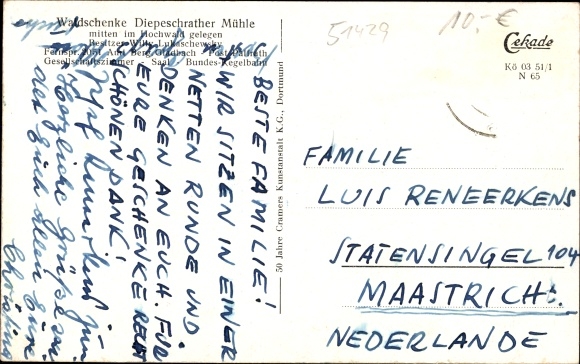 Waldschenke Diepeschrather Mühle
mitten im Hochwald gelegen
Besitzer Willy Lukaschewsky
Fernspr. Amt Berg. Gladbach
Gesellschaftszimmer - Saal Bundes-Kegelbahn
51429
10,- €
Cekade
Kö 03 51/1
N 65
50 Jahre Cramers Kunstanstalt K.G., Dortmund
BESTE FAMILIE!
WIR SITZEN IN EINER
NETTEN RUNDE UND
DENKEN AN EUCH. FÜR
EURE GESCHENKE RECHT
SCHÖNEN DANK!
Herzliche Grüße
Euch allen Eure
Christine
FAMILIE
LUIS RENEERKENS
STATENSINGEL 104
MAASTRICHT.
NEDERLANDE